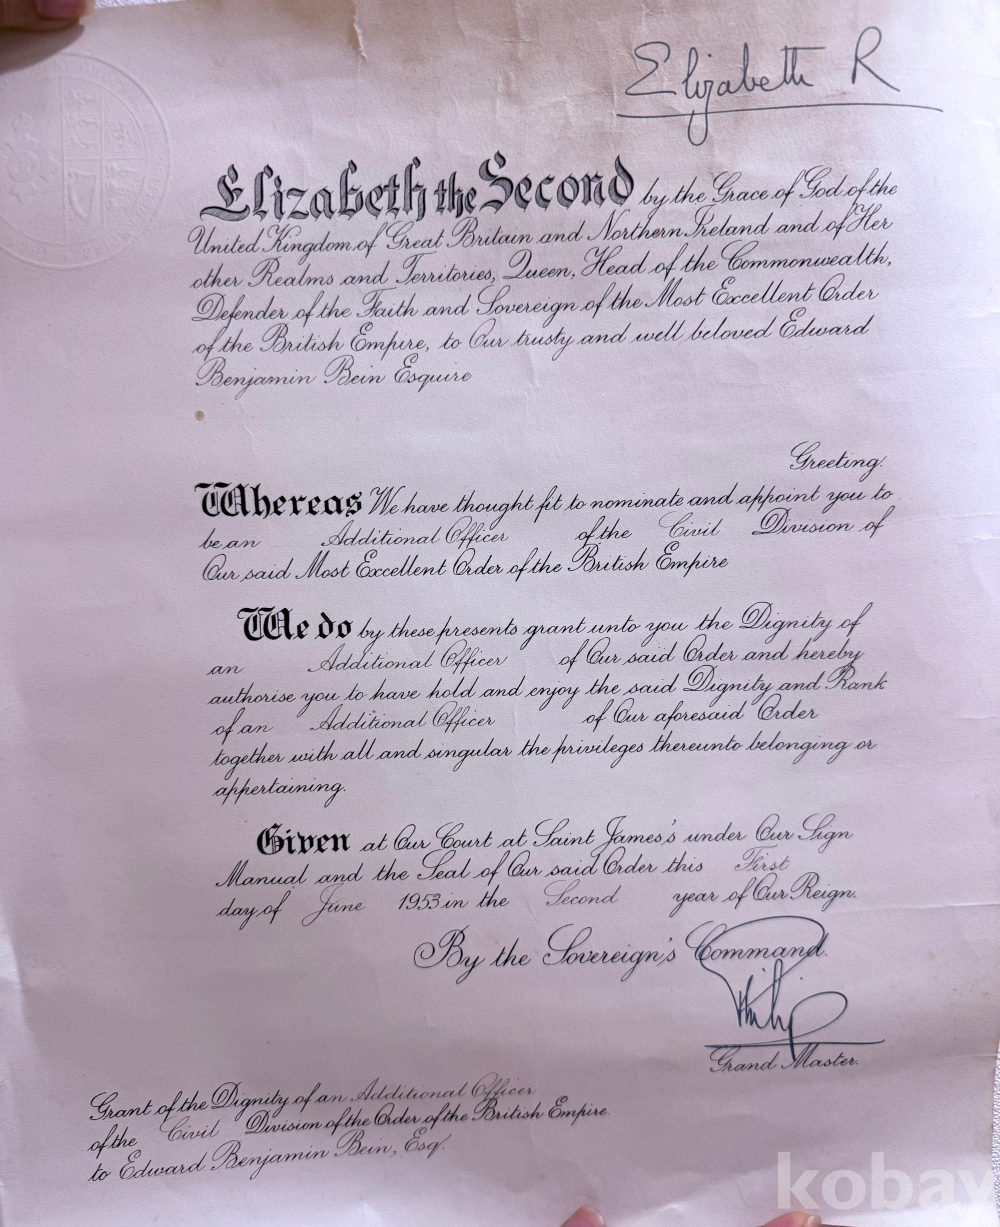 Elizabeth R
Elizabeth the Second by the Grace of God of the
United Kingdom of Great Britain and Northern Ireland and of Her
other Realms and Territories, Queen, Head of the Commonwealth,
Defender of the Faith and Sovereign of the Most Excellent Order
of the British Empire, to Our trusty and well beloved Edward
Benjamin Bein Esquire
Greeting.
Whereas We have thought fit to nominate and appoint you to
be an Additional Officer of the Civil Division of
Our said Most Excellent Order of the British Empire
We do by these presents grant unto you the Dignity of
an Additional Officer of Our said Order and hereby
authorise you to have hold and enjoy the said Dignity and Rank
of an Additional Officer of Our aforesaid Order
together with all and singular the privileges thereunto belonging or
appertaining.
Given at Our Court at Saint James's under Our Sign
Manual and the Seal of Our said Order this First
day of June 1953 in the Second year of Our Reign.
By the Sovereign's Command.
Philip
Grand Master.
Grant of the Dignity of an Additional Officer
of the Civil Division of the Order of the British Empire
to Edward Benjamin Bein, Esq.
kobay